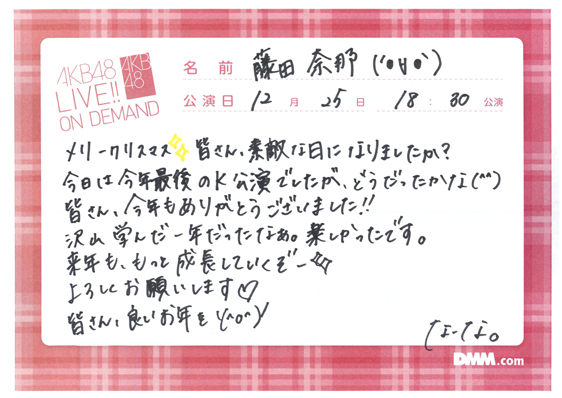 AKB48
LIVE!!
ON DEMAND
AKB
48
名前 藤田 奈那 ('●∀●`)
公演日 12月 25日 18:30 公演
メリークリスマス 皆さん、素敵な日になりましたか?
今日は今年最後のK公演でしたが、どうだったかな(^^)
皆さん、今年もありがとうございました!!
沢山学んだ一年だったなぁ。楽しかったです。
来年も、もっと成長していくぞー☆
よろしくお願いします♡
皆さん、良いお年を\(^o^)/
なーな。
DMM.com